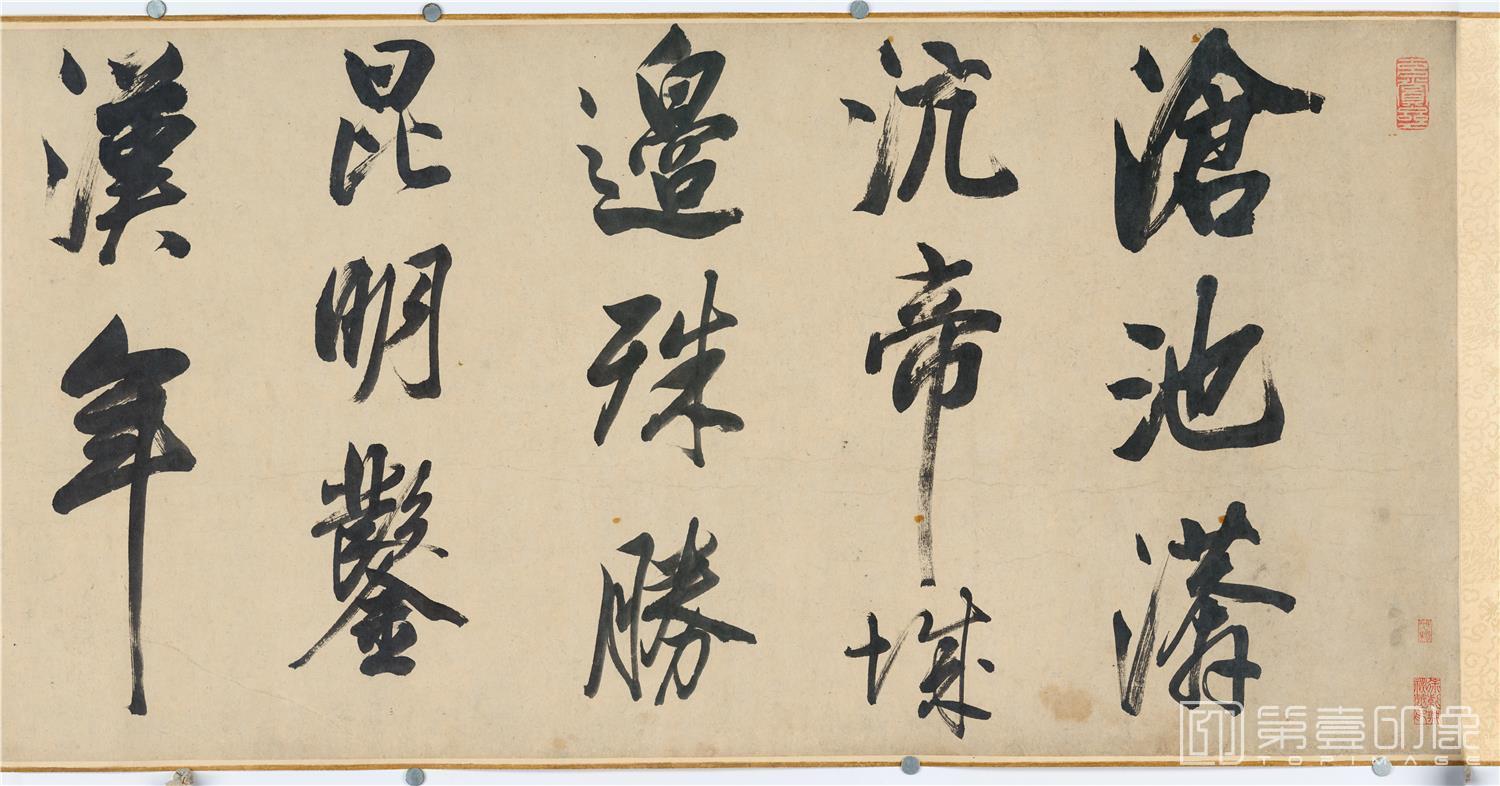 滄池漭
沆帝城
邊殊勝
昆明鑿
漢年
第壹印像
TOPIMAGE